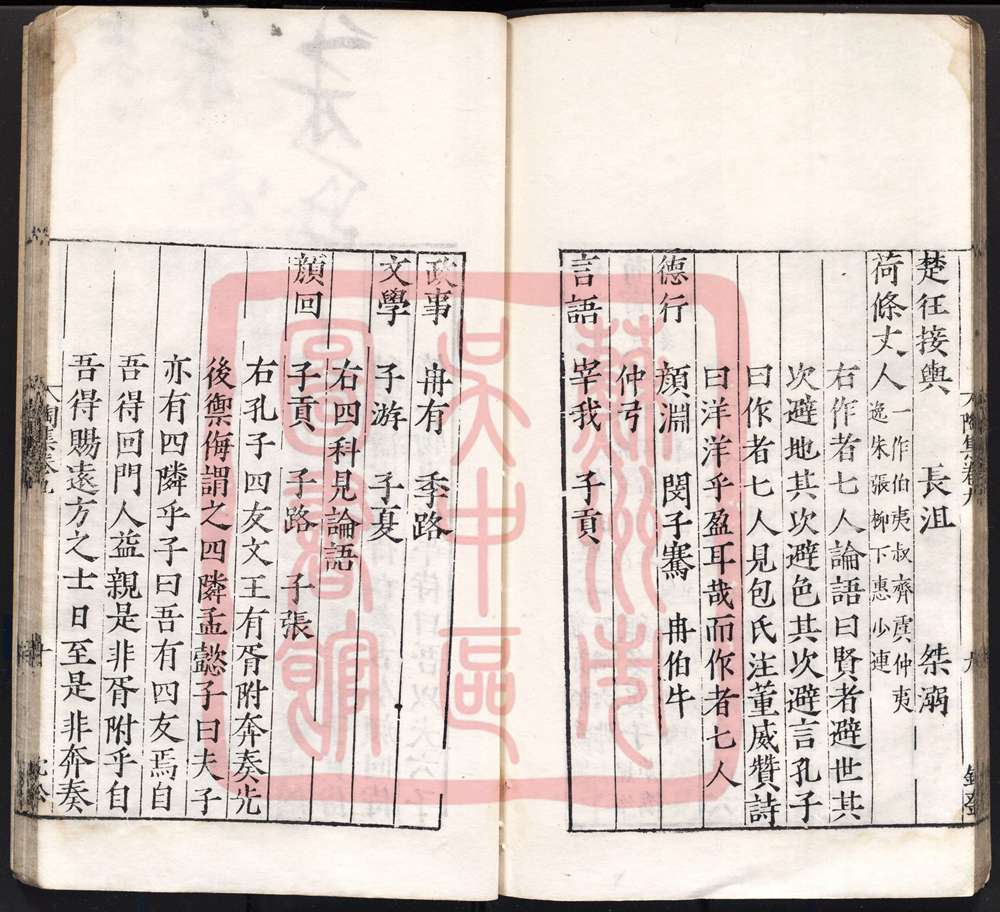 楚狂接輿 長沮 桀溺
荷條丈人 一作伯夷叔齊虞仲夷
逸朱張柳下惠少連
右作者七人論語曰賢者避世其
次避地其次避色其次避言孔子
曰作者七人見包氏注董威贊詩
曰洋洋乎盈耳哉而作者七人
德行 顏淵 閔子騫 冉伯牛
仲弓
言語 宰我 子貢
政事 冉有 季路
文學 子游 子夏
右四科見論語
顏回 子貢 子路 子張
右孔子四友文王有胥附奔奏先
後禦侮謂之四隣孟懿子曰夫子
亦有四隣乎子曰吾有四友焉自
吾得回門人益親是非胥附乎自
吾得賜遠方之士日至是非奔奏
陶集卷九
蘇州市
吳中區
圖書館